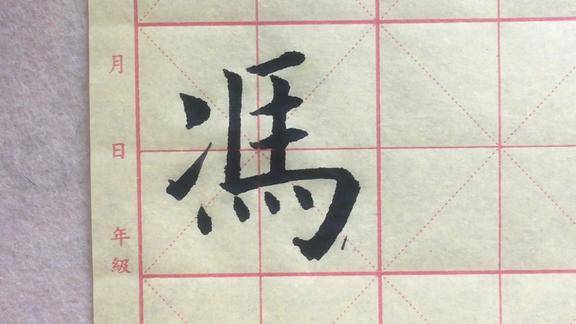 馮
月
日
年
级